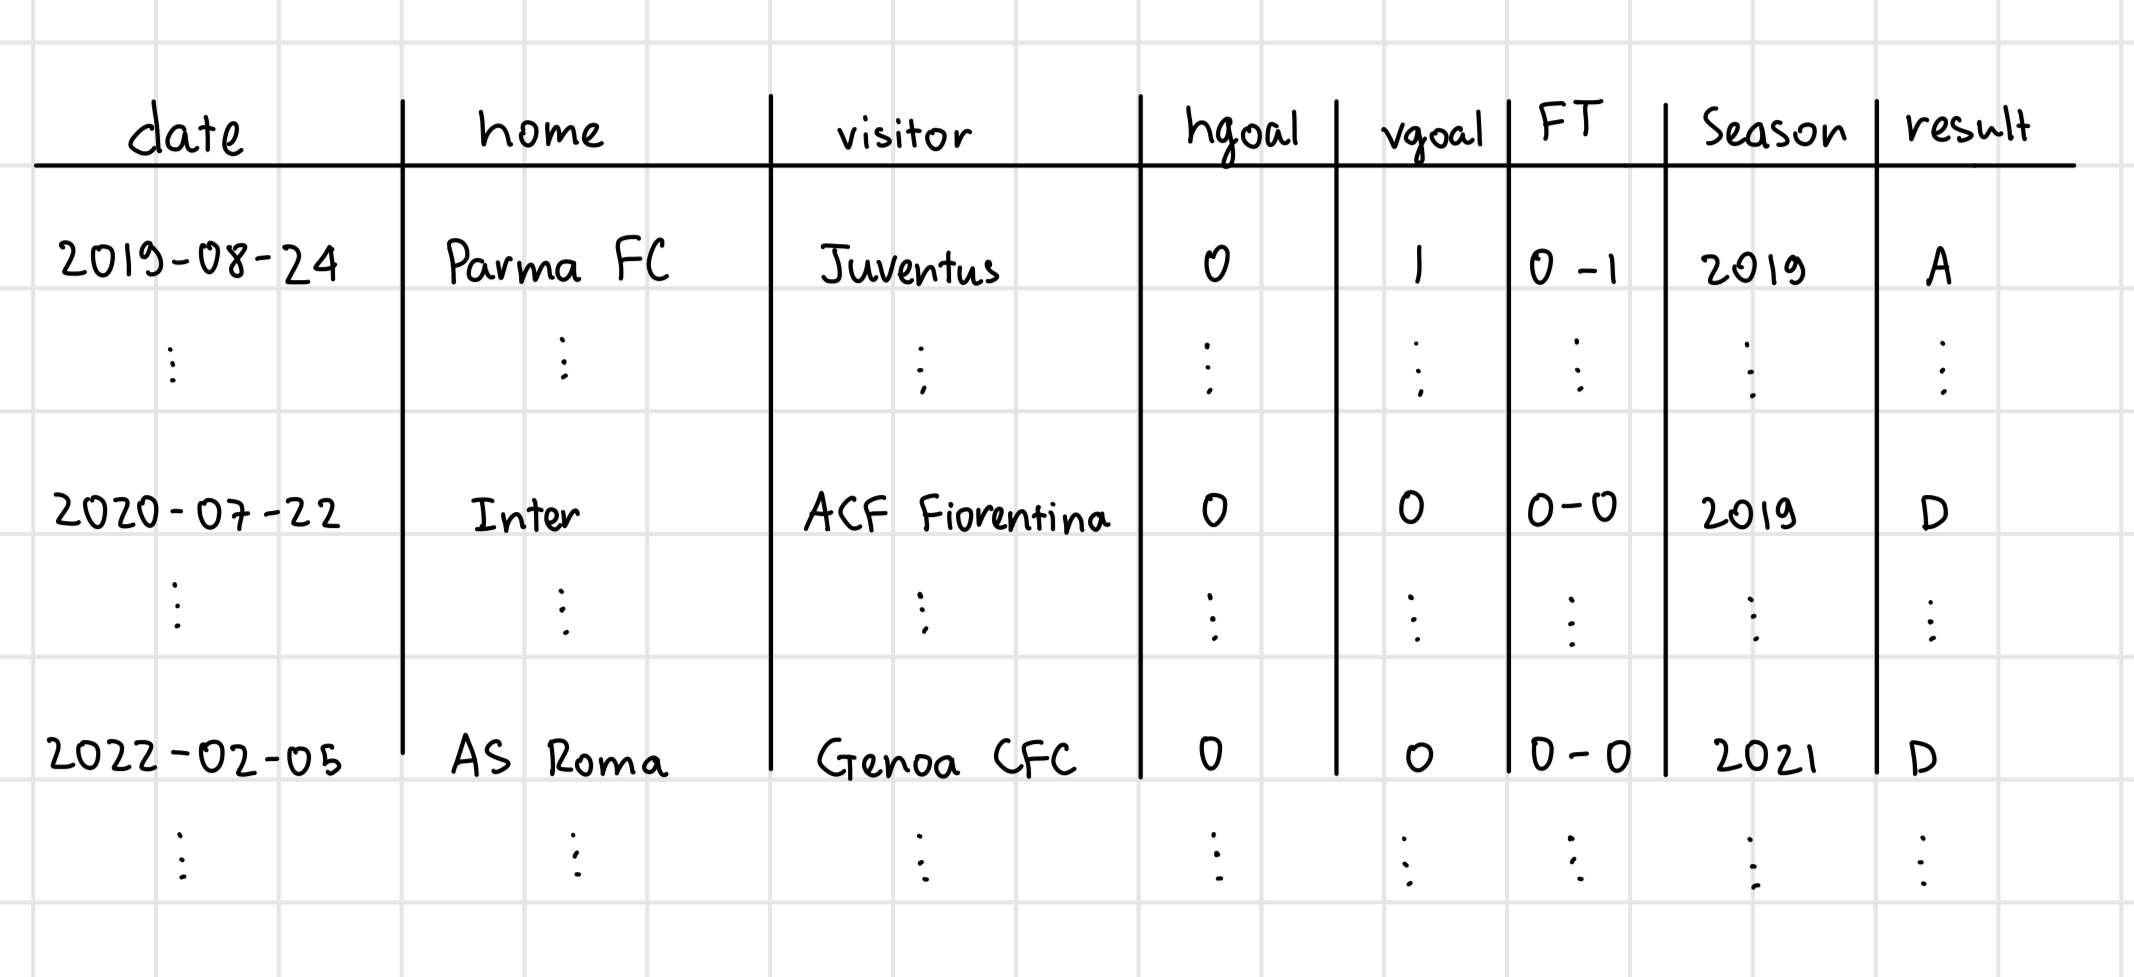 date home visitor hgoal vgoal FT Season result
2019-08-24 Parma FC Juventus 0 1 0-1 2019 A
⋮ ⋮ ⋮ ⋮ ⋮ ⋮ ⋮ ⋮
2020-07-22 Inter ACF Fiorentina 0 0 0-0 2019 D
⋮ ⋮ ⋮ ⋮ ⋮ ⋮ ⋮ ⋮
2022-02-05 AS Roma Genoa CFC 0 0 0-0 2021 D
⋮ ⋮ ⋮ ⋮ ⋮ ⋮ ⋮ ⋮